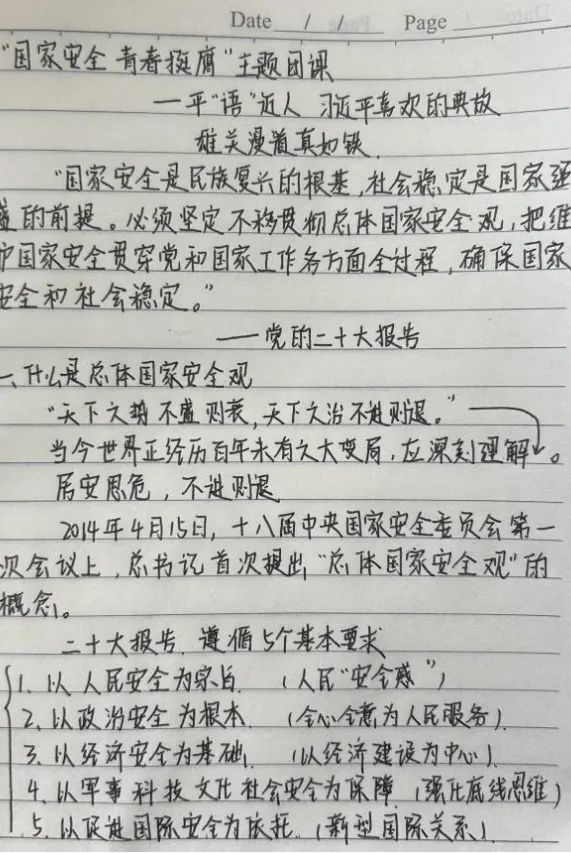 Date / / Page
"国家安全 青春挺膺"主题团课
—平"语"近人 习近平喜欢的典故
雄关漫道真如铁
"国家安全是民族复兴的根基,社会稳定是国家强
盛的前提。必须坚定不移贯彻总体国家安全观,把维
护国家安全贯穿党和国家工作各方面全过程,确保国家
安全和社会稳定。"
——党的二十大报告
一、什么是总体国家安全观
"天下之势不盛则衰,天下之治不进则退。"
当今世界正经历百年未有之大变局,应深刻理解。
居安思危,不进则退
2014年4月15日,十八届中央国家安全委员会第一
次会议上,总书记首次提出"总体国家安全观"的
概念。
二十大报告.遵循5个基本要求
1. 以人民安全为宗旨.(人民"安全感")
2. 以政治安全为根本.(全心全意为人民服务)
3. 以经济安全为基础.(以经济建设为中心)
4. 以军事科技文化社会安全为保障.(强化底线思维)
5. 以促进国际安全为依托.(新型国际关系)